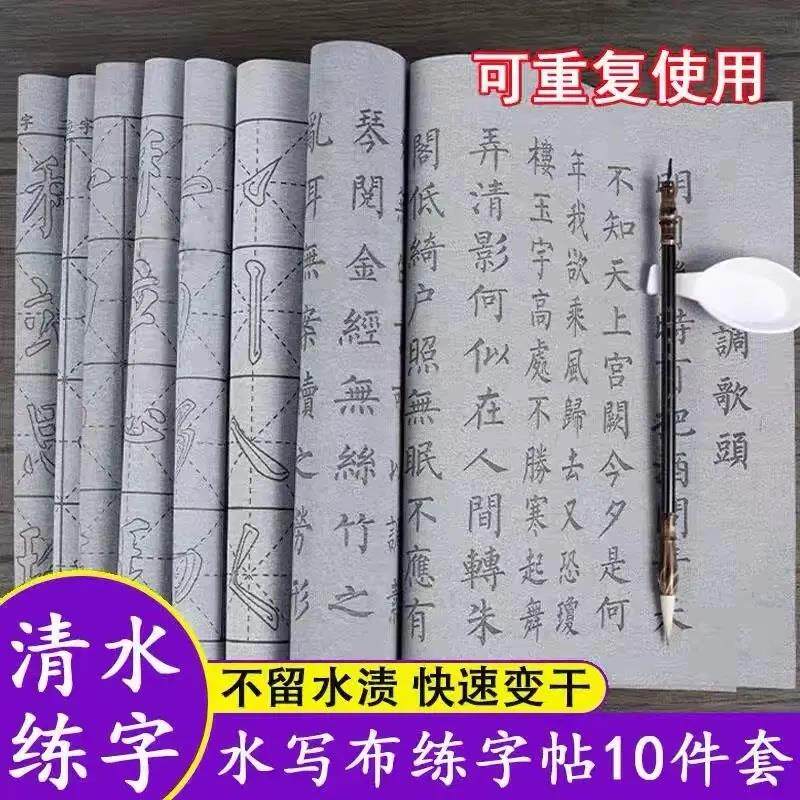 可重复使用
調歌頭
不知天上宮闕今夕是何
年我欲乘風歸去又恐瓊
樓玉宇高處不勝寒起舞
弄清影何似在人間轉朱
閣低綺户照無眠不應有
琴閱金經無絲竹之
亂耳無案牘之勞形
清水
练字
不留水渍 快速变干
水写布练字帖10件套